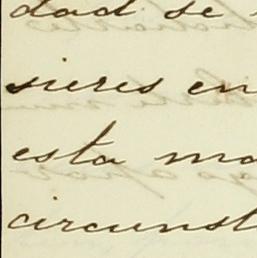 dad se
sieres en
esta ma
circunst